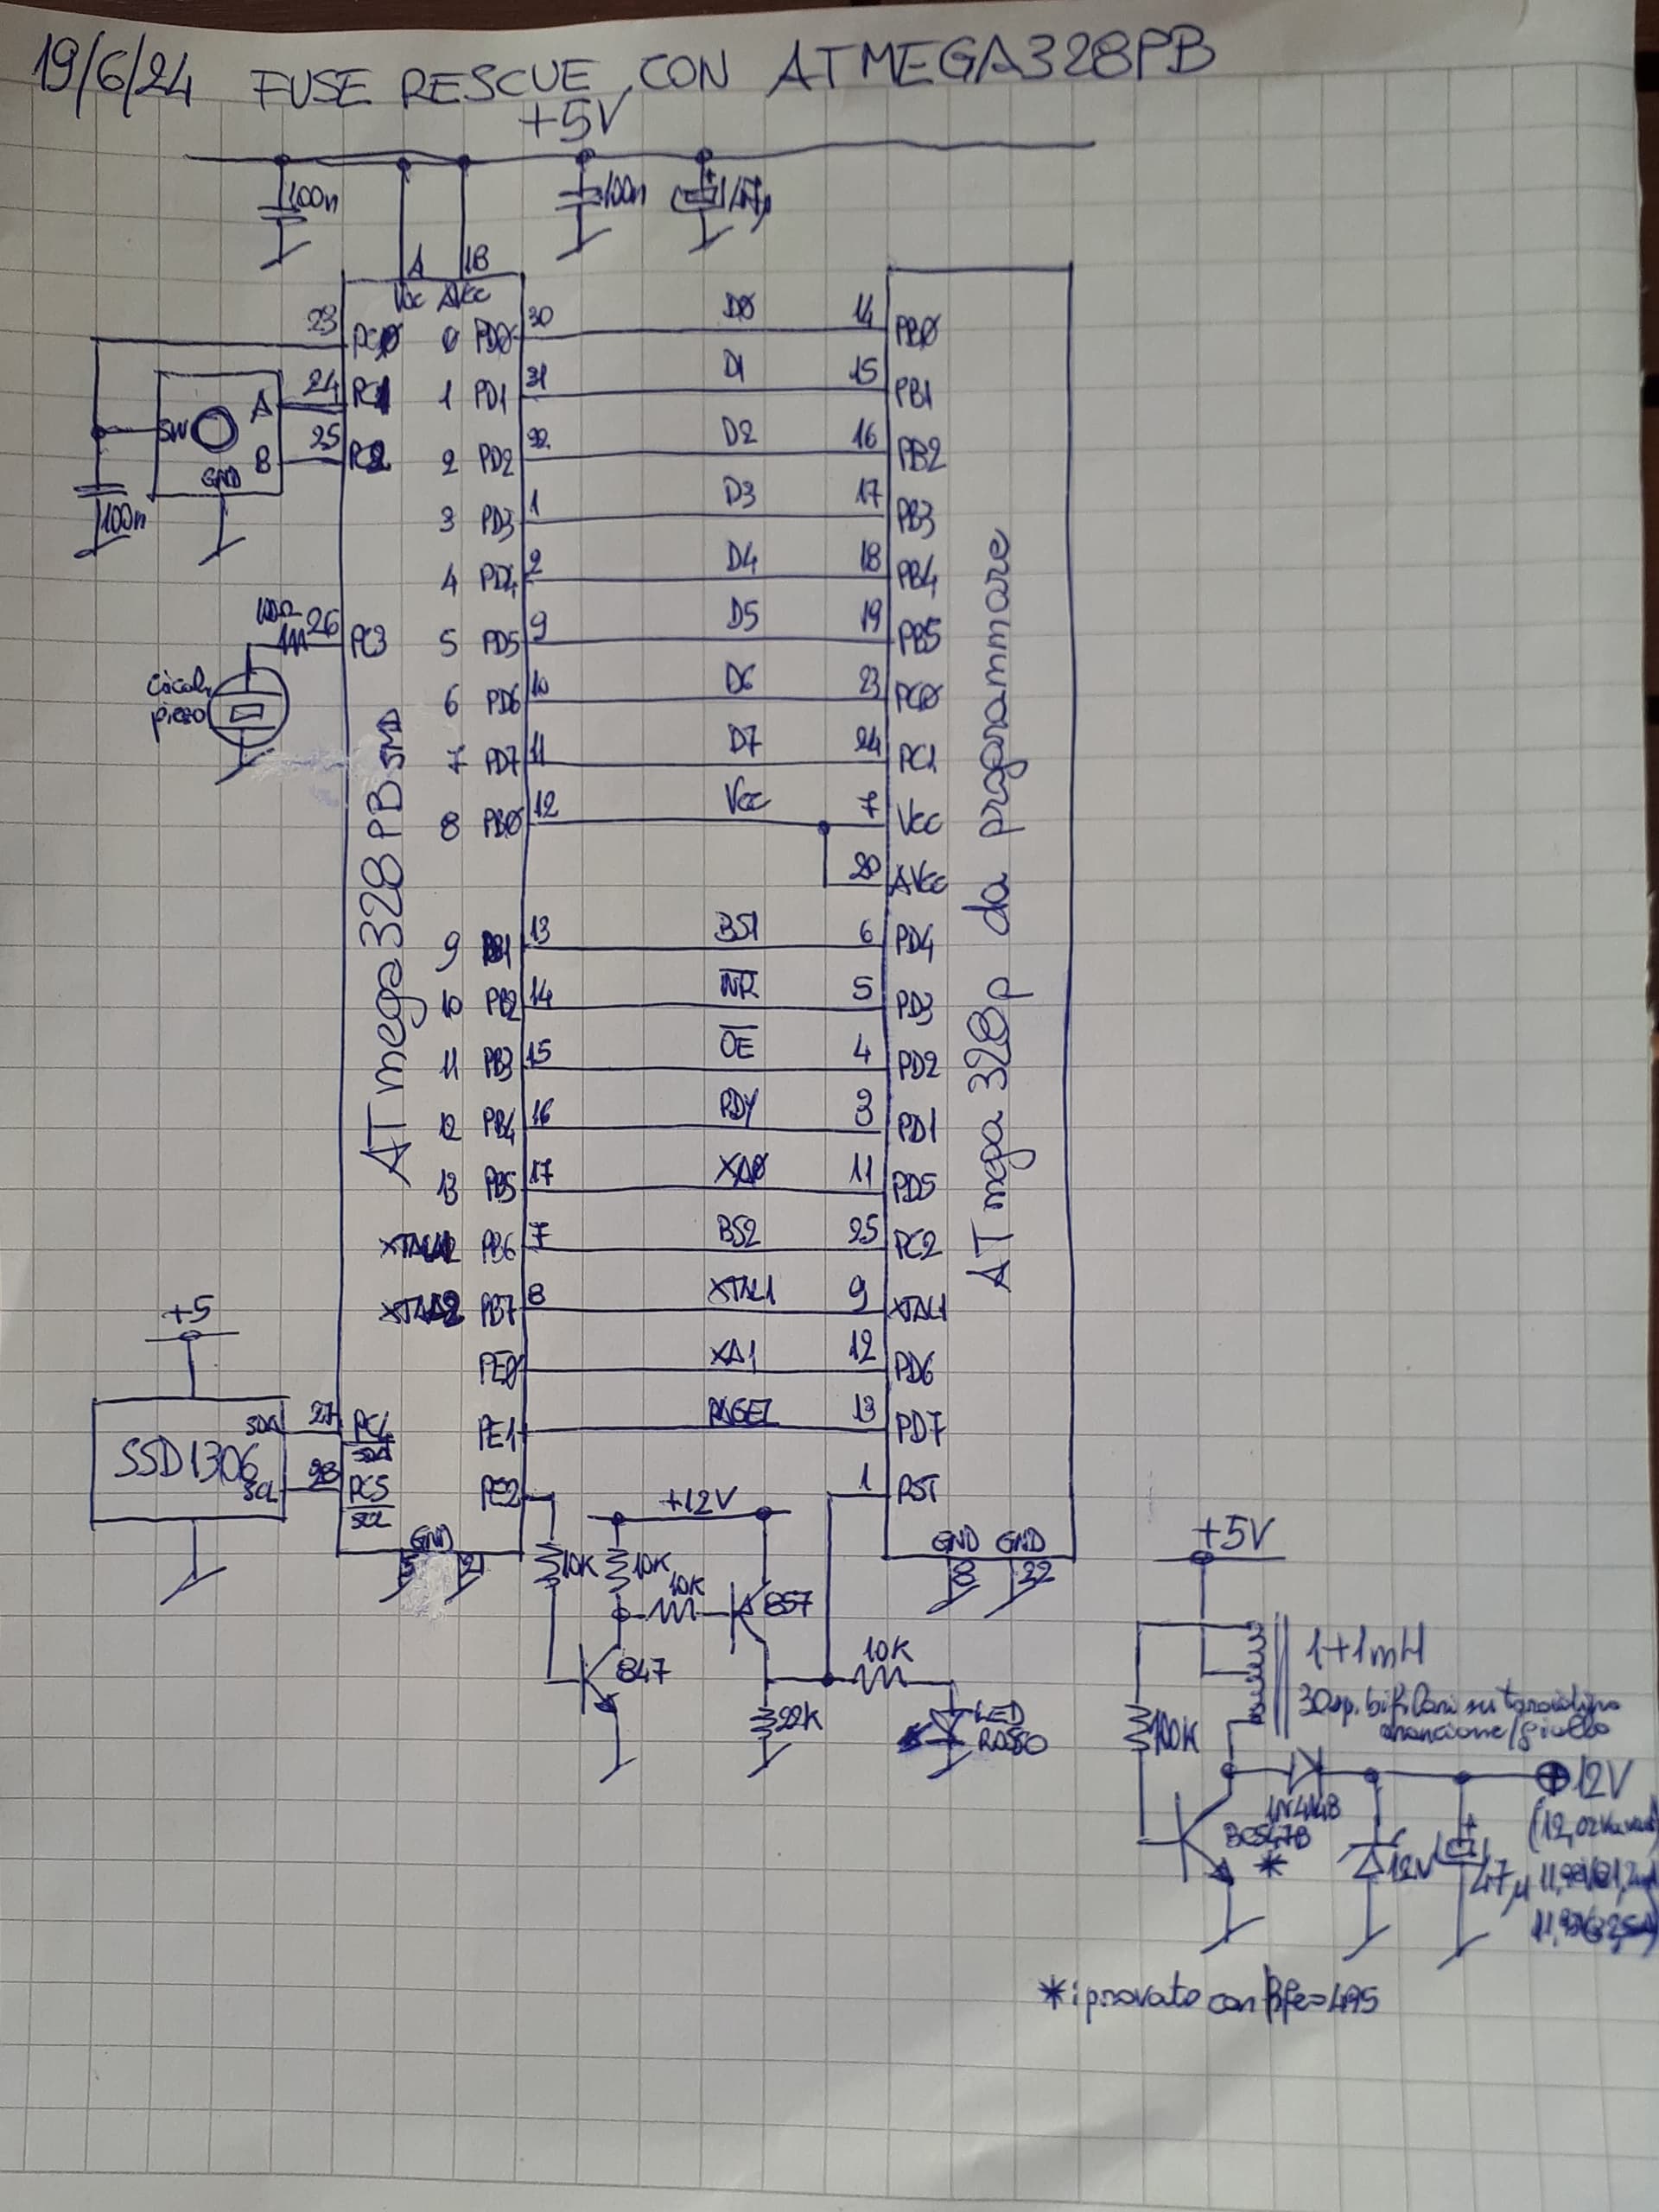 19/6/24 FUSE RESCUE CON ATMEGA328PB
+5V
100n
100n
47µ
4 18
Vcc AVcc
23 PC0 0 PD0 30 D0 14 PB0
24 PC1 1 PD1 31 D1 15 PB1
25 PC2 2 PD2 32 D2 16 PB2
SW A B GND
100n
3 PD3 1 D3 17 PB3
4 PD4 2 D4 18 PB4
100Ω 26 PC3 5 PD5 9 D5 19 PB5
piezo
6 PD6 10 D6 23 PC0
7 PD7 11 D7 24 PC1
8 PB0 12 Vcc 7 Vcc
20 AVcc
9 PB1 13 BS1 6 PD4
10 PB2 14 WR 5 PD3
11 PB3 15 OE 4 PD2
12 PB4 16 RDY 3 PD1
13 PB5 17 XA0 11 PD5
XTAL1 PB6 7 BS2 25 PC2
XTAL2 PB7 8 XTAL1 9 XTAL1
PE0 XA1 12 PD6
PE1 PAGEL 13 PD7
PE2 1 RST
ATmega328PB SMD
ATmega328p da programmare
+5
SSD1306
SDA 27 PC4 SDA
SCL 28 PC5 SCL
GND
5 21
GND GND
8 22
+12V
10K 10K 10K
857
847
22K
10K
LED
ROSSO
+5V
1+1mH
30sp. bifilari su toroidino
arancione/giallo
100K
1N4148
BC547B
*
12V
47µ
+12V
*: provato con hfe=495